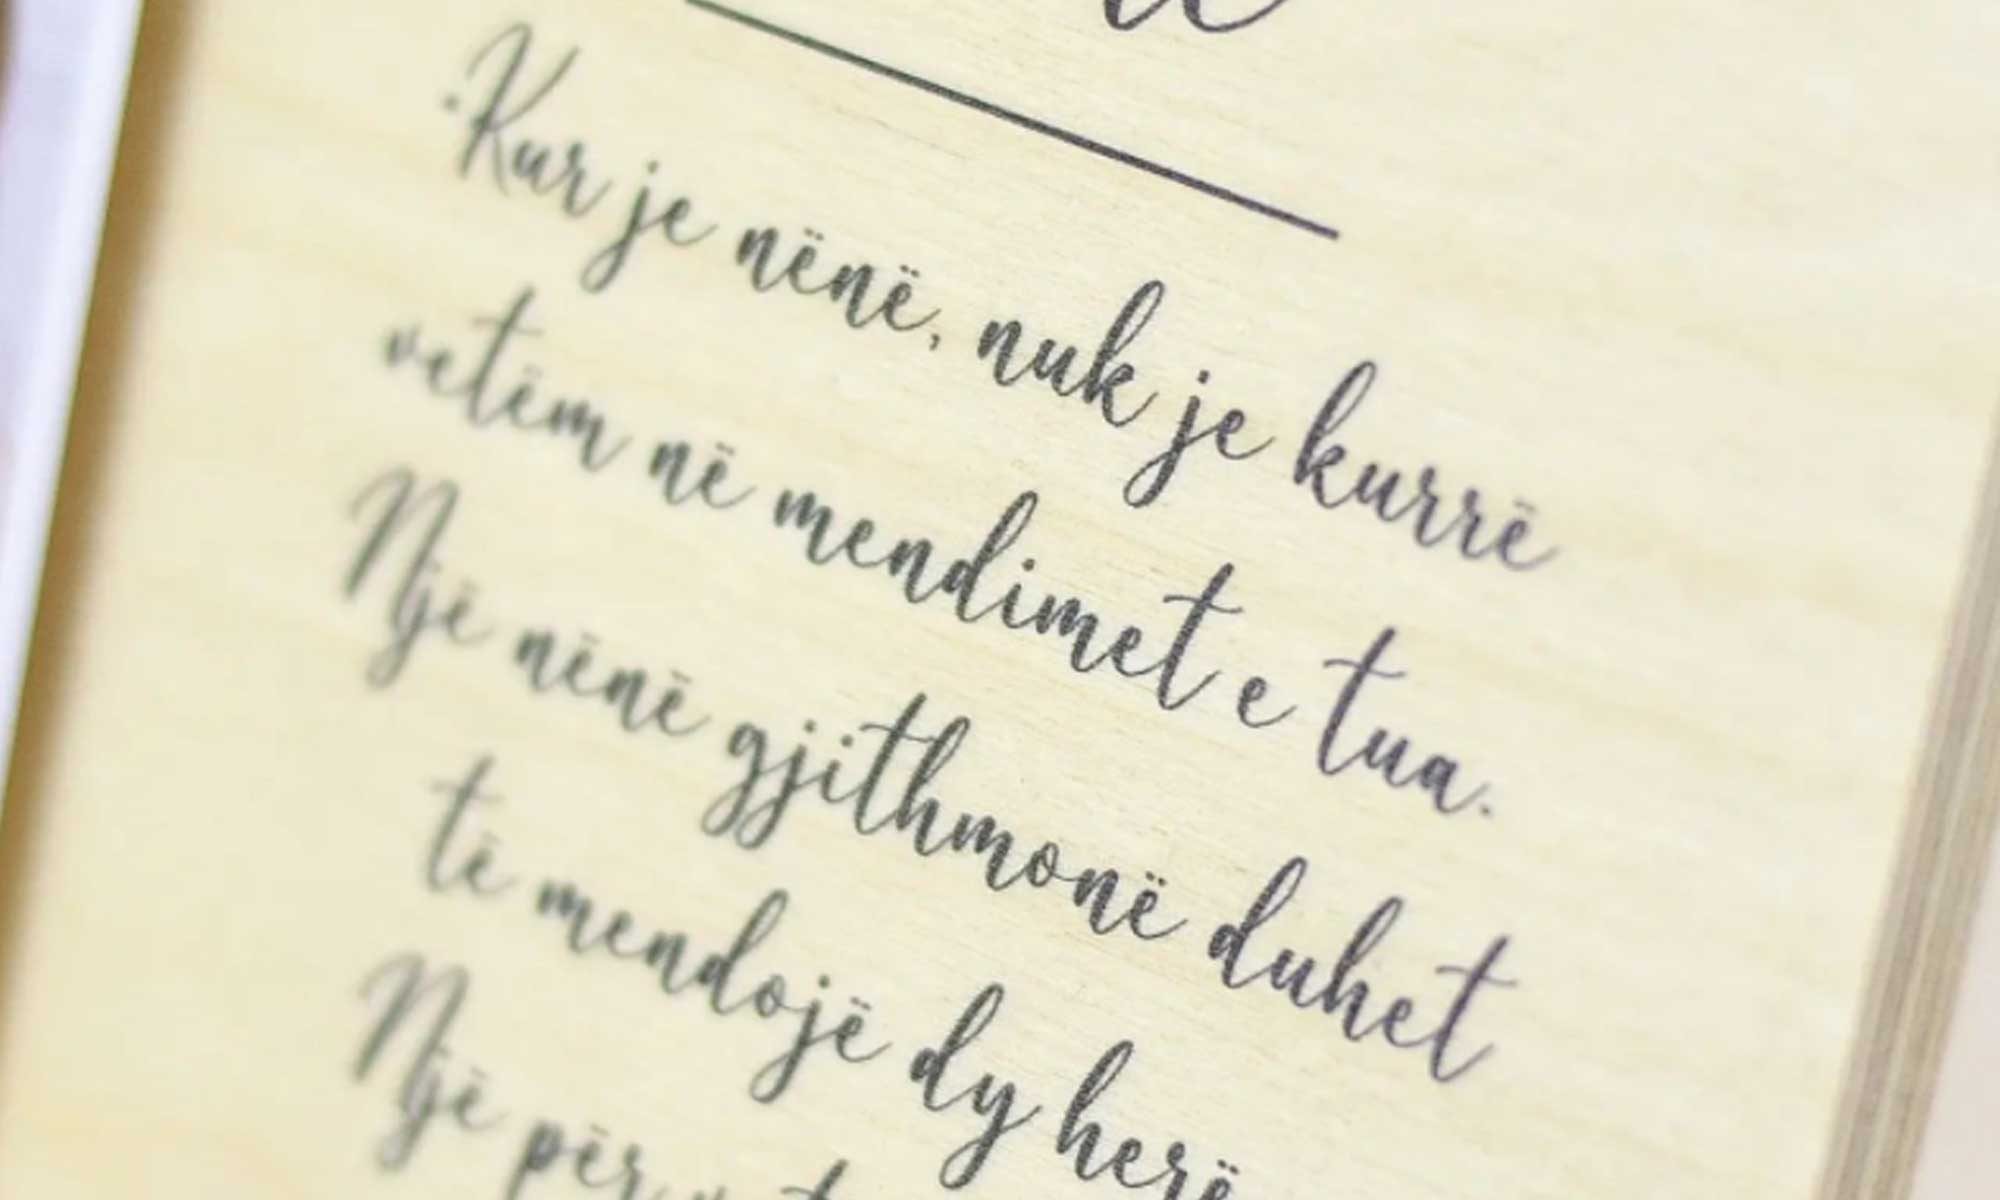 Kur je nënë, nuk je kurrë
vetëm në mendimet e tua.
Një nënë gjithmonë duhet
të mendojë dy herë
Një për